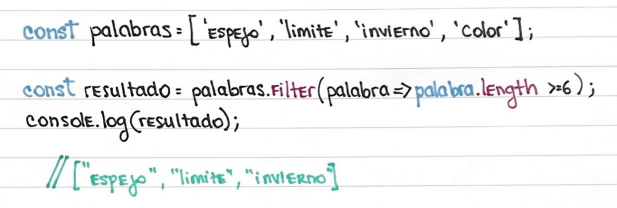 const palabras = ['Espejo', 'limite', 'invierno', 'color'];
const resultado = palabras.Filter(palabra => palabra.length >=6);
console.log(resultado);
// ["Espejo", "limite", "invierno"]